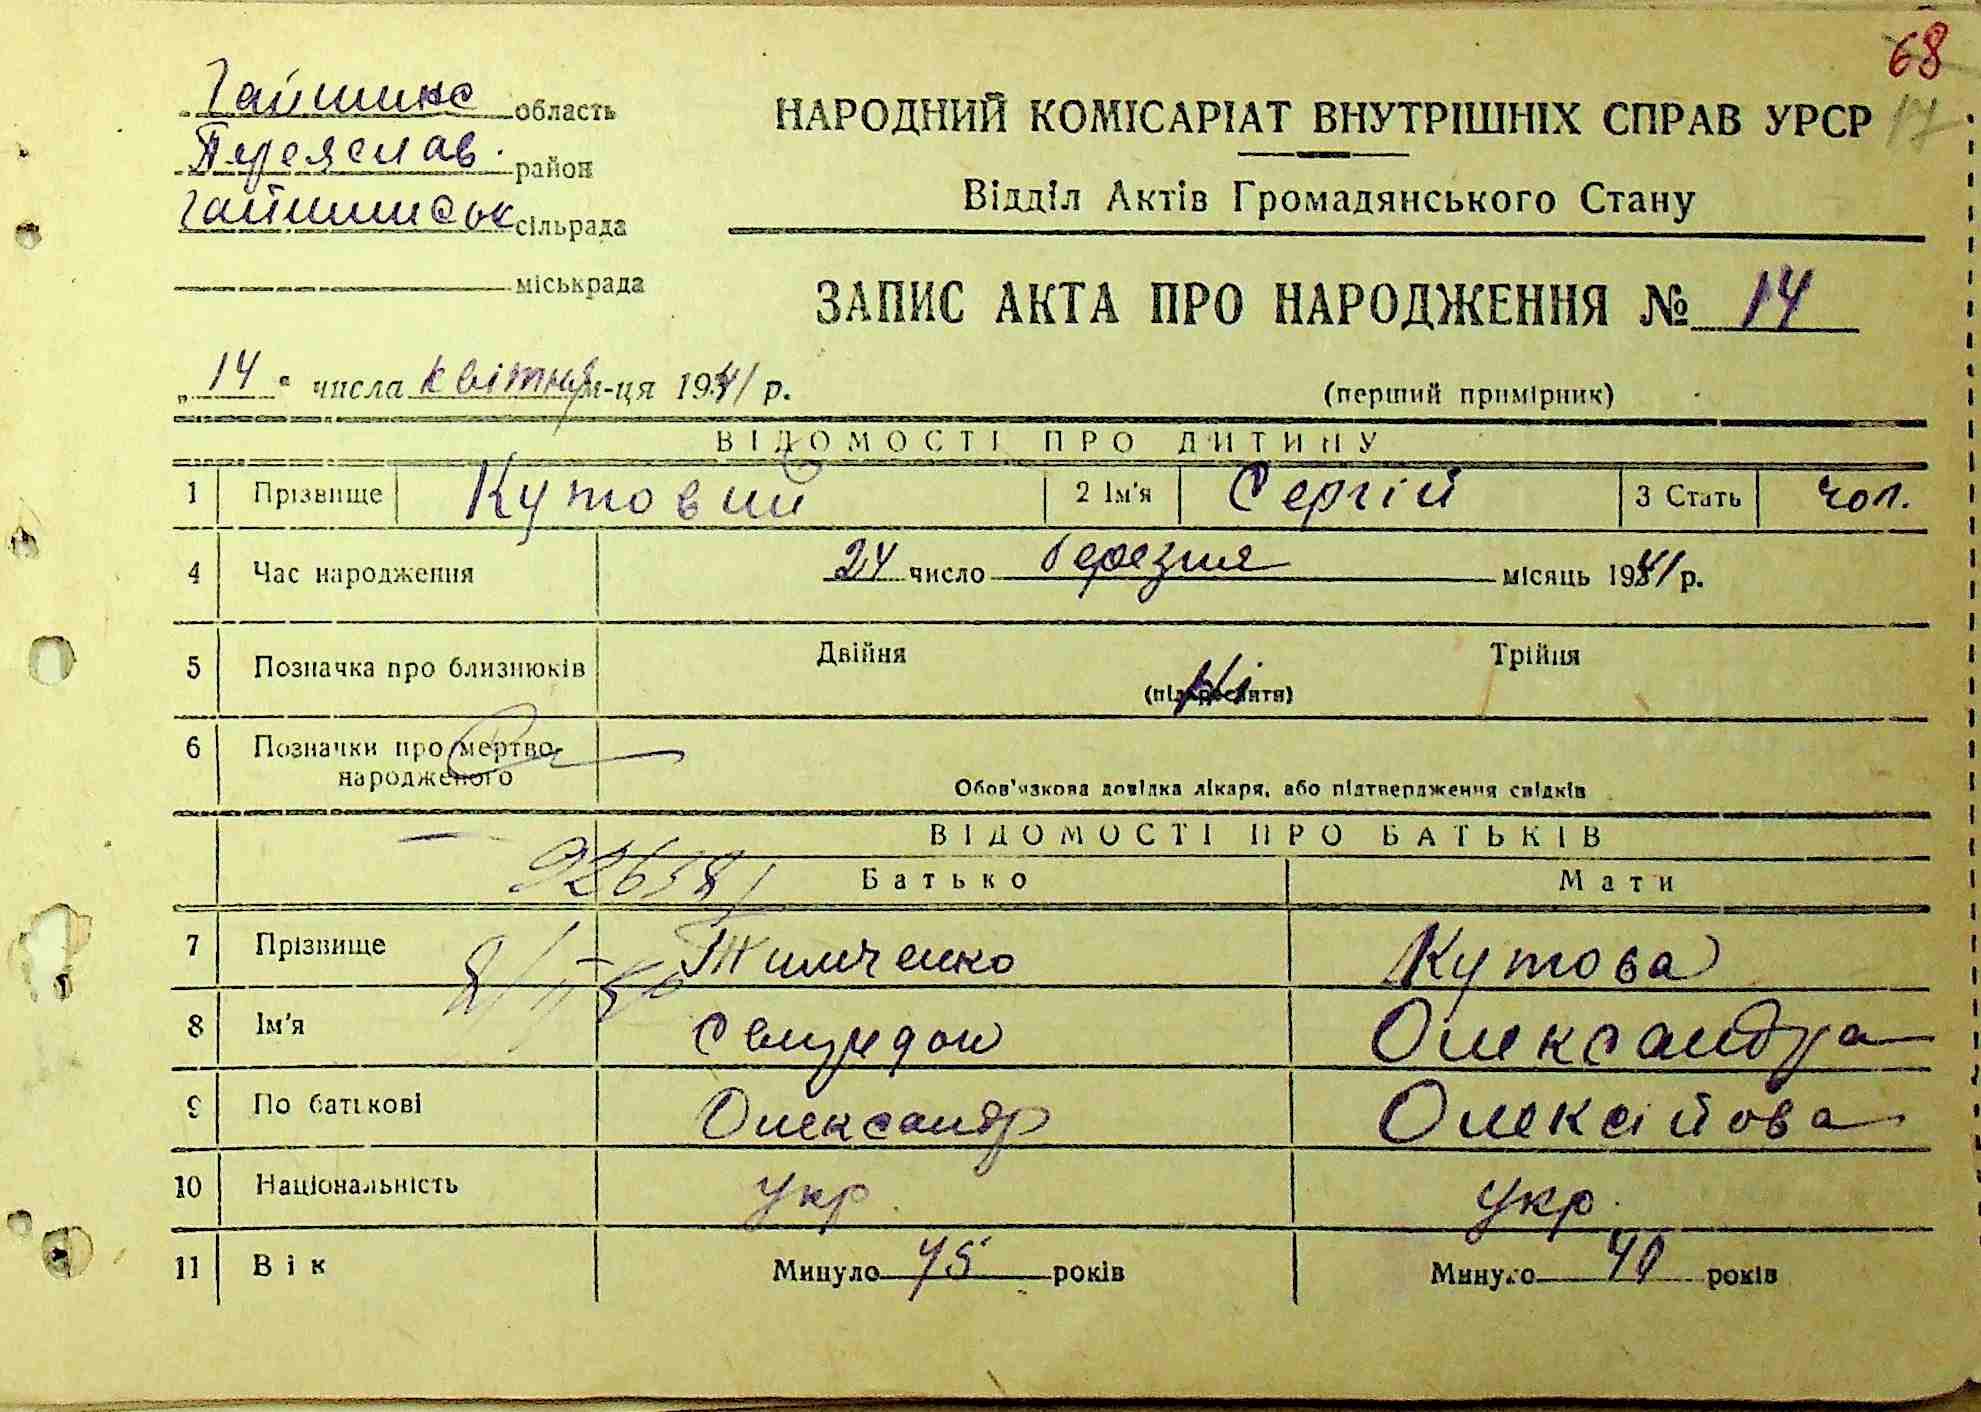 68
17
область
Переяслав. район
Гайшинськ сільрада
міськрада
НАРОДНИЙ КОМІСАРІАТ ВНУТРІШНІХ СПРАВ УРСР
Відділ Актів Громадянського Стану
ЗАПИС АКТА ПРО НАРОДЖЕННЯ № 14
„14“ числа квітня м-ця 1941 р.
(перший примірник)
ВІДОМОСТІ ПРО ДИТИНУ
1 Прізвище Кутовий 2 Ім'я Сергій 3 Стать чол.
4 Час народження 24 число березня місяць 1941 р.
5 Позначка про близнюків Двійня Ні Трійня
(підкреслити)
6 Позначки про мертво-
народженого
Обов'язкова довідка лікаря, або підтвердження свідків
ВІДОМОСТІ ПРО БАТЬКІВ
Батько Мати
7 Прізвище Тимченко Кутова
8 Ім'я Олександра
9 По батькові Олександр Олексійова
10 Національність укр. укр.
11 Вік Минуло 45 років Минуло 40 років